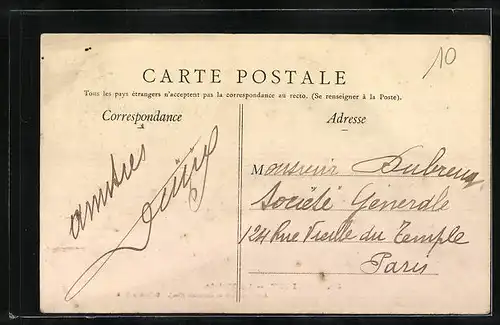 10
CARTE POSTALE
Tous les pays étrangers n'acceptent pas la correspondance au recto. (Se renseigner à la Poste).
Correspondance
Adresse
amitiés
Monsieur Dubreuq
Société Générale
124 Rue Vieille du Temple
Paris